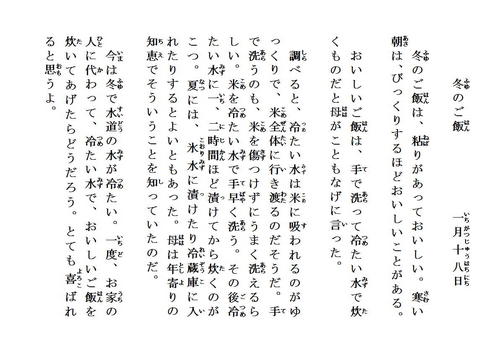 冬のご飯　一月十八日
冬のご飯は、粘りがあっておいしい。寒い
朝は、びっくりするほどおいしいことがある。
おいしいご飯は、手で洗って冷たい水で炊
くものだと母がこともなげに言った。
調べると、冷たい水は米に吸われるのがゆ
っくりで、米全体に行き渡るのだそうだ。手
で洗うのも、米を傷つけずにうまく洗えるら
しい。米を冷たい水で手早く洗う。その後冷
たい水に一、二時間ほど漬けてから炊くのが
こつ。夏には、氷水に漬けたり冷蔵庫に入
れたりするとよいともあった。母は年寄りの
知恵でそういうことを知っていたのだ。
今は冬で水道の水が冷たい。一度、お家の
人に代わって、冷たい水で、おいしいご飯を
炊いてあげたらどうだろう。とても喜ばれ
ると思うよ。